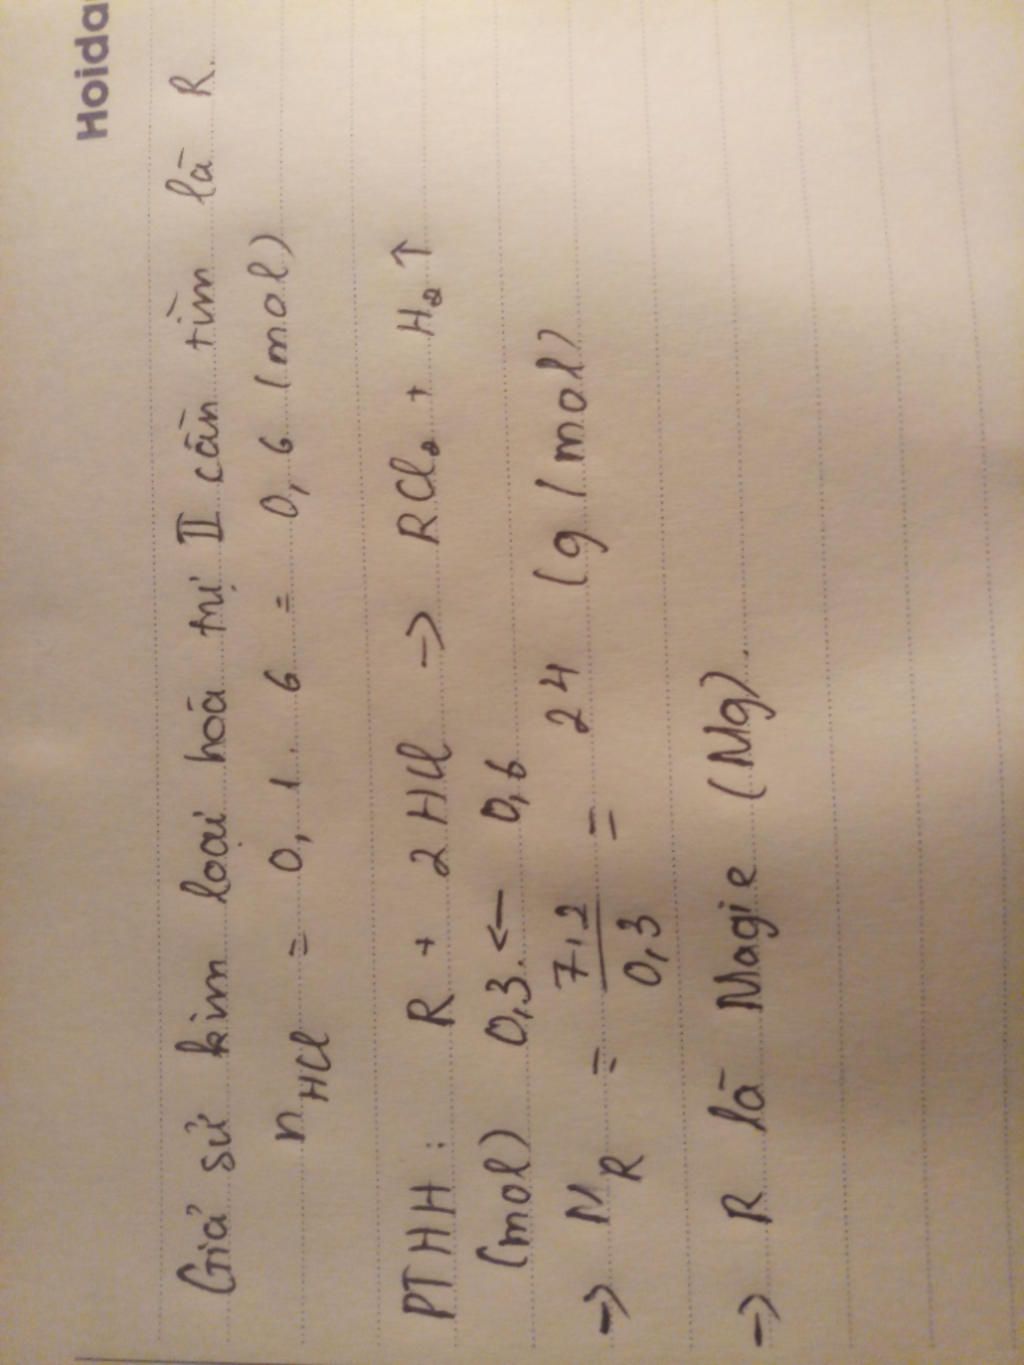 Hoida
Giả sử kim loại hoá trị II cần tìm là R.
nHCl = 0,1.6 = 0,6 (mol)
PTHH: R + 2HCl → RCl₂ + H₂↑
(mol) 0,3 ← 0,6
→ M_R = 7,2/0,3 = 24 (g/mol)
→ R là Magie (Mg).